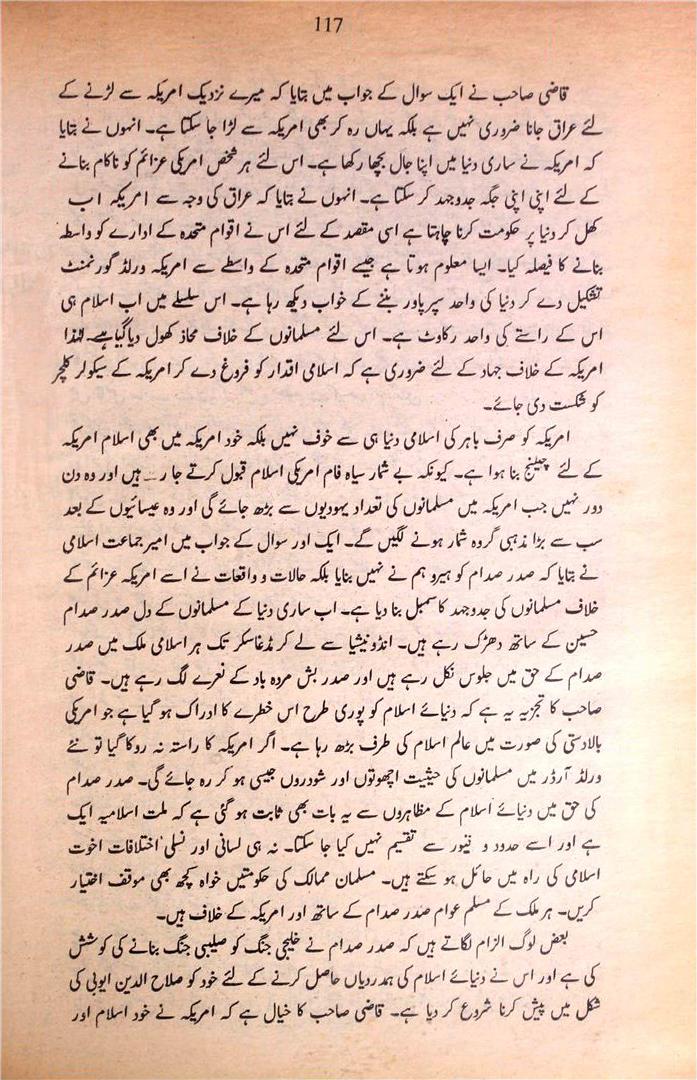 117
قاضی صاحب نے ایک سوال کے جواب میں بتایا کہ میرے نزدیک امریکہ سے لڑنے کے
لئے عراق جانا ضروری نہیں ہے بلکہ یہاں رہ کر بھی امریکہ سے لڑا جا سکتا ہے۔ انہوں نے بتایا
کہ امریکہ نے ساری دنیا میں اپنا جال بچھا رکھا ہے۔ اس لئے ہر شخص امریکی عزائم کو ناکام بنانے
کے لئے اپنی اپنی جگہ جدوجہد کر سکتا ہے۔ انہوں نے بتایا کہ عراق کی وجہ سے امریکہ اب
کھل کر دنیا پر حکومت کرنا چاہتا ہے اسی مقصد کے لئے اس نے اقوام متحدہ کے ادارے کو واسطہ
بنانے کا فیصلہ کیا۔ ایسا معلوم ہوتا ہے جیسے اقوام متحدہ کے واسطے سے امریکہ ورلڈ گورنمنٹ
تشکیل دے کر دنیا کی واحد سپر پاور بننے کے خواب دیکھ رہا ہے۔ اس سلسلے میں اب اسلام ہی
اس کے راستے کی واحد رکاوٹ ہے۔ اس لئے مسلمانوں کے خلاف محاذ کھول دیا گیا ہے۔ لہٰذا
امریکہ کے خلاف جہاد کے لئے ضروری ہے کہ اسلامی اقدار کو فروغ دے کر امریکہ کے سیکولر کلچر
کو شکست دی جائے۔
امریکہ کو صرف باہر کی اسلامی دنیا ہی سے خوف نہیں بلکہ خود امریکہ میں بھی اسلام امریکہ
کے لئے چیلنج بنا ہوا ہے۔ کیونکہ بے شمار سیاہ فام امریکی اسلام قبول کرتے جا رہے ہیں اور وہ دن
دور نہیں جب امریکہ میں مسلمانوں کی تعداد یہودیوں سے بڑھ جائے گی اور وہ عیسائیوں کے بعد
سب سے بڑا مذہبی گروہ شمار ہونے لگیں گے۔ ایک اور سوال کے جواب میں امیر جماعت اسلامی
نے بتایا کہ صدر صدام کو ہیرو ہم نے نہیں بنایا بلکہ حالات و واقعات نے اسے امریکہ عزائم کے
خلاف مسلمانوں کی جدوجہد کا سمبل بنا دیا ہے۔ اب ساری دنیا کے مسلمانوں کے دل صدر صدام
حسین کے ساتھ دھڑک رہے ہیں۔ انڈونیشیا سے لے کر مڈغاسکر تک ہر اسلامی ملک میں صدر
صدام کے حق میں جلوس نکل رہے ہیں اور صدر بش مردہ باد کے نعرے لگ رہے ہیں۔ قاضی
صاحب کا تجزیہ یہ ہے کہ دنیائے اسلام کو پوری طرح اس خطرے کا ادراک ہو گیا ہے جو امریکی
بالادستی کی صورت میں عالم اسلام کی طرف بڑھ رہا ہے۔ اگر امریکہ کا راستہ نہ روکا گیا تو نئے
ورلڈ آرڈر میں مسلمانوں کی حیثیت اچھوتوں اور شودروں جیسی ہو کر رہ جائے گی۔ صدر صدام
کی حق میں دنیائے اسلام کے مظاہروں سے یہ بات بھی ثابت ہو گئی ہے کہ ملت اسلامیہ ایک
ہے اور اسے حدود و قیور سے تقسیم نہیں کیا جا سکتا۔ نہ ہی لسانی اور نسلی اختلافات اخوت
اسلامی کی راہ میں حائل ہو سکتے ہیں۔ مسلمان ممالک کی حکومتیں خواہ کچھ بھی موقف اختیار
کریں۔ ہر ملک کے مسلم عوام صدر صدام کے ساتھ اور امریکہ کے خلاف ہیں۔
بعض لوگ الزام لگاتے ہیں کہ صدر صدام نے خلیجی جنگ کو صلیبی جنگ بنانے کی کوشش
کی ہے اور اس نے دنیائے اسلام کی ہمدردیاں حاصل کرنے کے لئے خود کو صلاح الدین ایوبی کی
شکل میں پیش کرنا شروع کر دیا ہے۔ قاضی صاحب کا خیال ہے کہ امریکہ نے خود اسلام اور